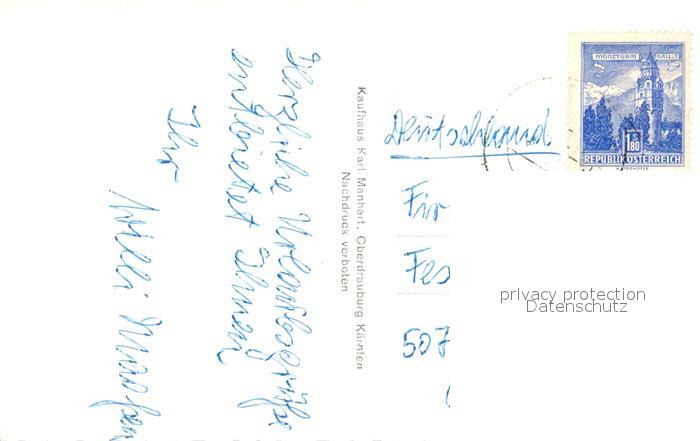 Herzliche Urlaubsgrüße
entbietet Ihnen
Ihr
Willi
Kaufhaus Karl Manhart, Oberdrauburg Kärnten
Nachdruck verboten
MÜNZTURM HALL i. T.
1.80
REPUBLIK ÖSTERREICH
Deutschland
Fir
Fes
507
privacy protection
Datenschutz